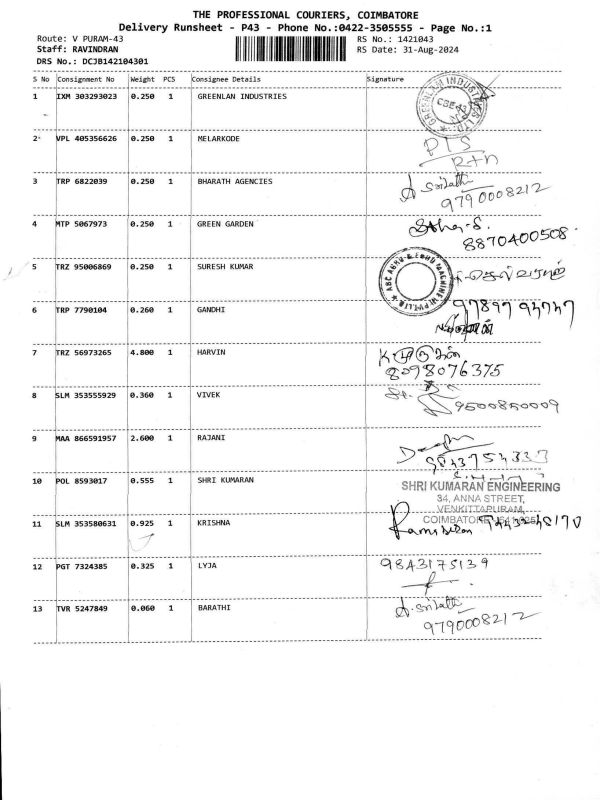 THE PROFESSIONAL COURIERS, COIMBATORE
Delivery Runsheet - P43 - Phone No.:0422-3505555 - Page No.:1
Route: V PURAM-43 RS No.: 1421043
Staff: RAVINDRAN RS Date: 31-Aug-2024
DRS No.: DCJB142104301
S No Consignment No Weight PCS Consignee Details Signature
1 IXM 303293023 0.250 1 GREENLAN INDUSTRIES
GREENLAM INDUSTRIES LTD. CBE-43
2 VPL 405356626 0.250 1 MELARKODE
3 TRP 6822039 0.250 1 BHARATH AGENCIES
9790008212
4 MTP 5067973 0.250 1 GREEN GARDEN
8870400508
5 TRZ 95006869 0.250 1 SURESH KUMAR
செல்வராஜ்
6 TRP 7790104 0.260 1 GANDHI
7 TRZ 56973265 4.800 1 HARVIN
K முருகன்
8098076375
8 SLM 353555929 0.360 1 VIVEK
9 MAA 866591957 2.600 1 RAJANI
10 POL 8593017 0.555 1 SHRI KUMARAN
SHRI KUMARAN ENGINEERING
34, ANNA STREET,
VENKITTAPURAM,
11 SLM 353580631 0.925 1 KRISHNA
COIMBATORE
12 PGT 7324385 0.325 1 LYJA
9843175139
13 TVR 5247849 0.060 1 BARATHI
9790008212